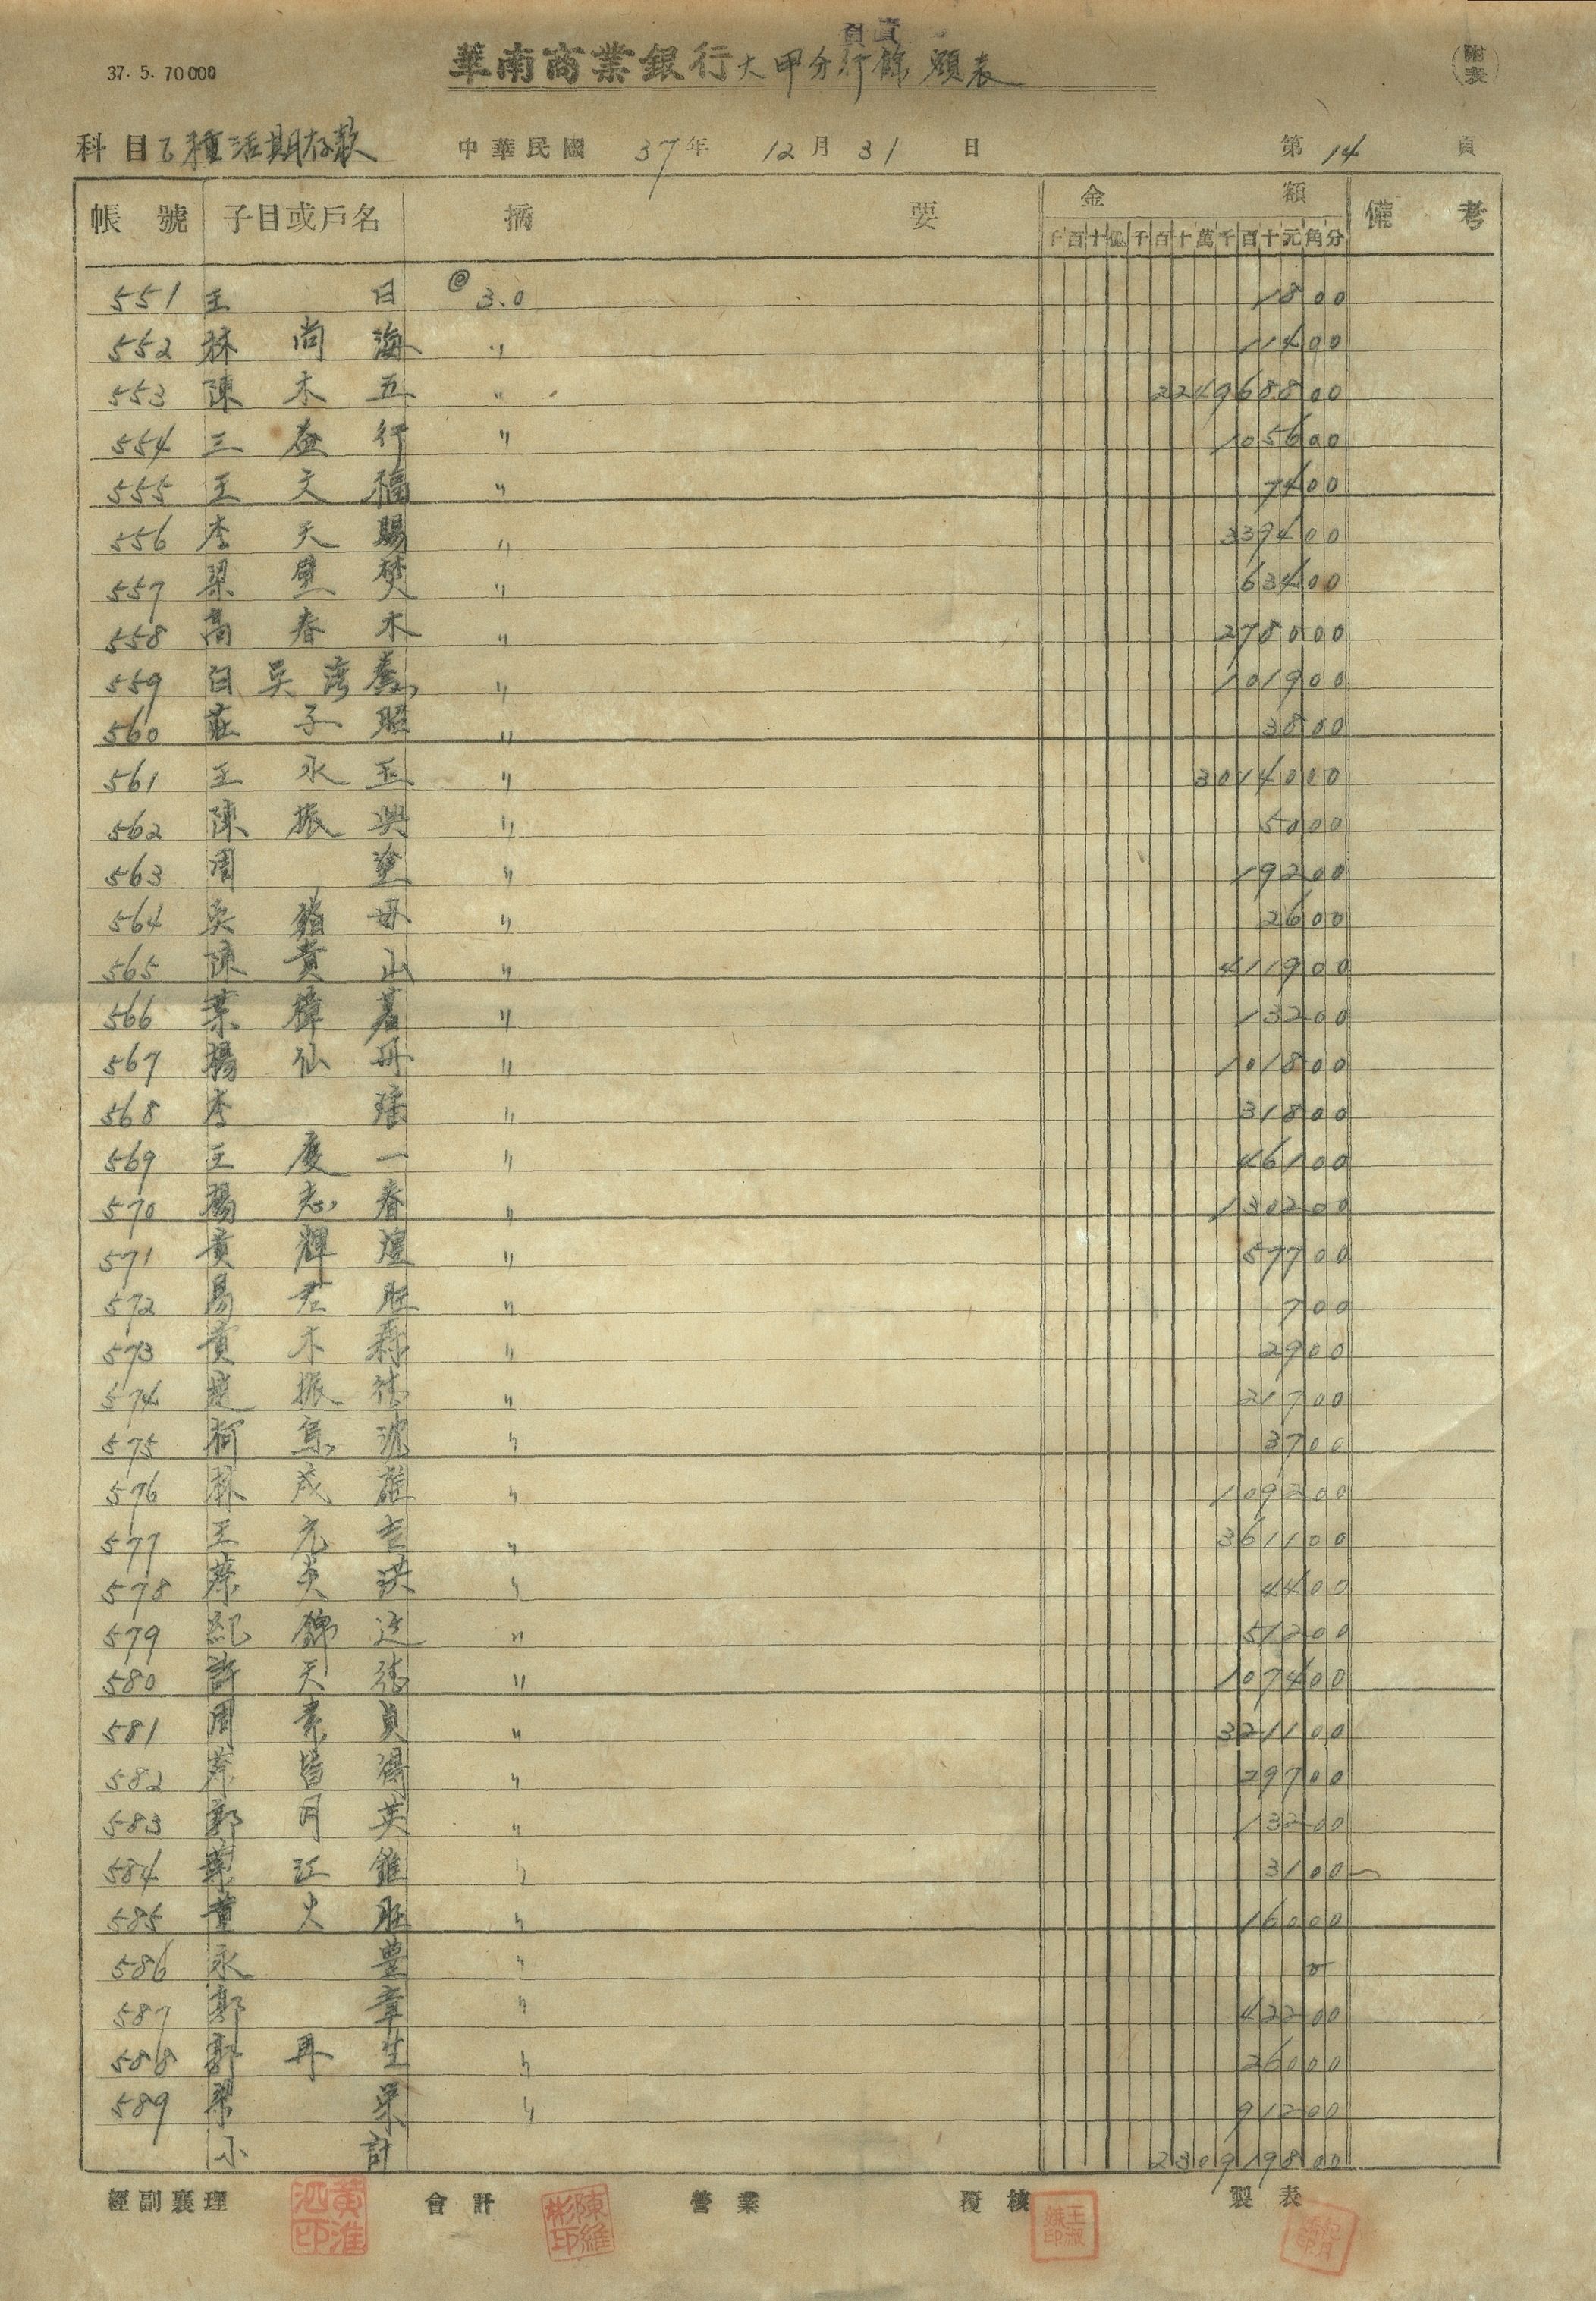 37. 5. 70000
負債
華南商業銀行大甲分行餘額表
附表
科目乙種活期存款 中華民國 37年 12月 31日 第 14 頁
帳號 子目或戶名 摘要 金額 備考
千百十億千百十萬千百十元角分
551 王日 @3.0 1800
552 林尚海 〃 11400
553 陳木五 〃 224968800
554 三益行 〃 105600
555 王文福 〃 7400
556 李天賜 〃 339400
557 梁 〃 63400
558 高春木 〃 278000
559 白吳湾 〃 101900
560 莊子照 〃 3800
561 王永玉 〃 3014000
562 陳振興 〃 5000
563 周塗 〃 19200
564 吳 〃 2600
565 陳貴山 〃 411900
566 葉樟 〃 13200
567 楊仙 〃 101800
568 李 〃 31800
569 王慶一 〃 46100
570 楊志春 〃 130200
571 黃輝煌 〃 57700
572 易君旺 〃 700
573 黃木森 〃 2900
574 趙振德 〃 21700
575 柯 〃 3700
576 林成雄 〃 109200
577 王元吉 〃 361100
578 蔡炎洪 〃 4400
579 紀錦 〃 51200
580 許天德 〃 107400
581 周素貞 〃 321100
582 〃 29700
583 郭月英 〃 13200
584 江錐 〃 3100
585 董火旺 〃 16000
586 永豊 〃 0
587 郭章 〃 42200
588 郭再生 〃 26000
589 〃 91200
小計 230919800
經副襄理 會計 營業 覆核 製表
黃淮泗印 陳維彬印